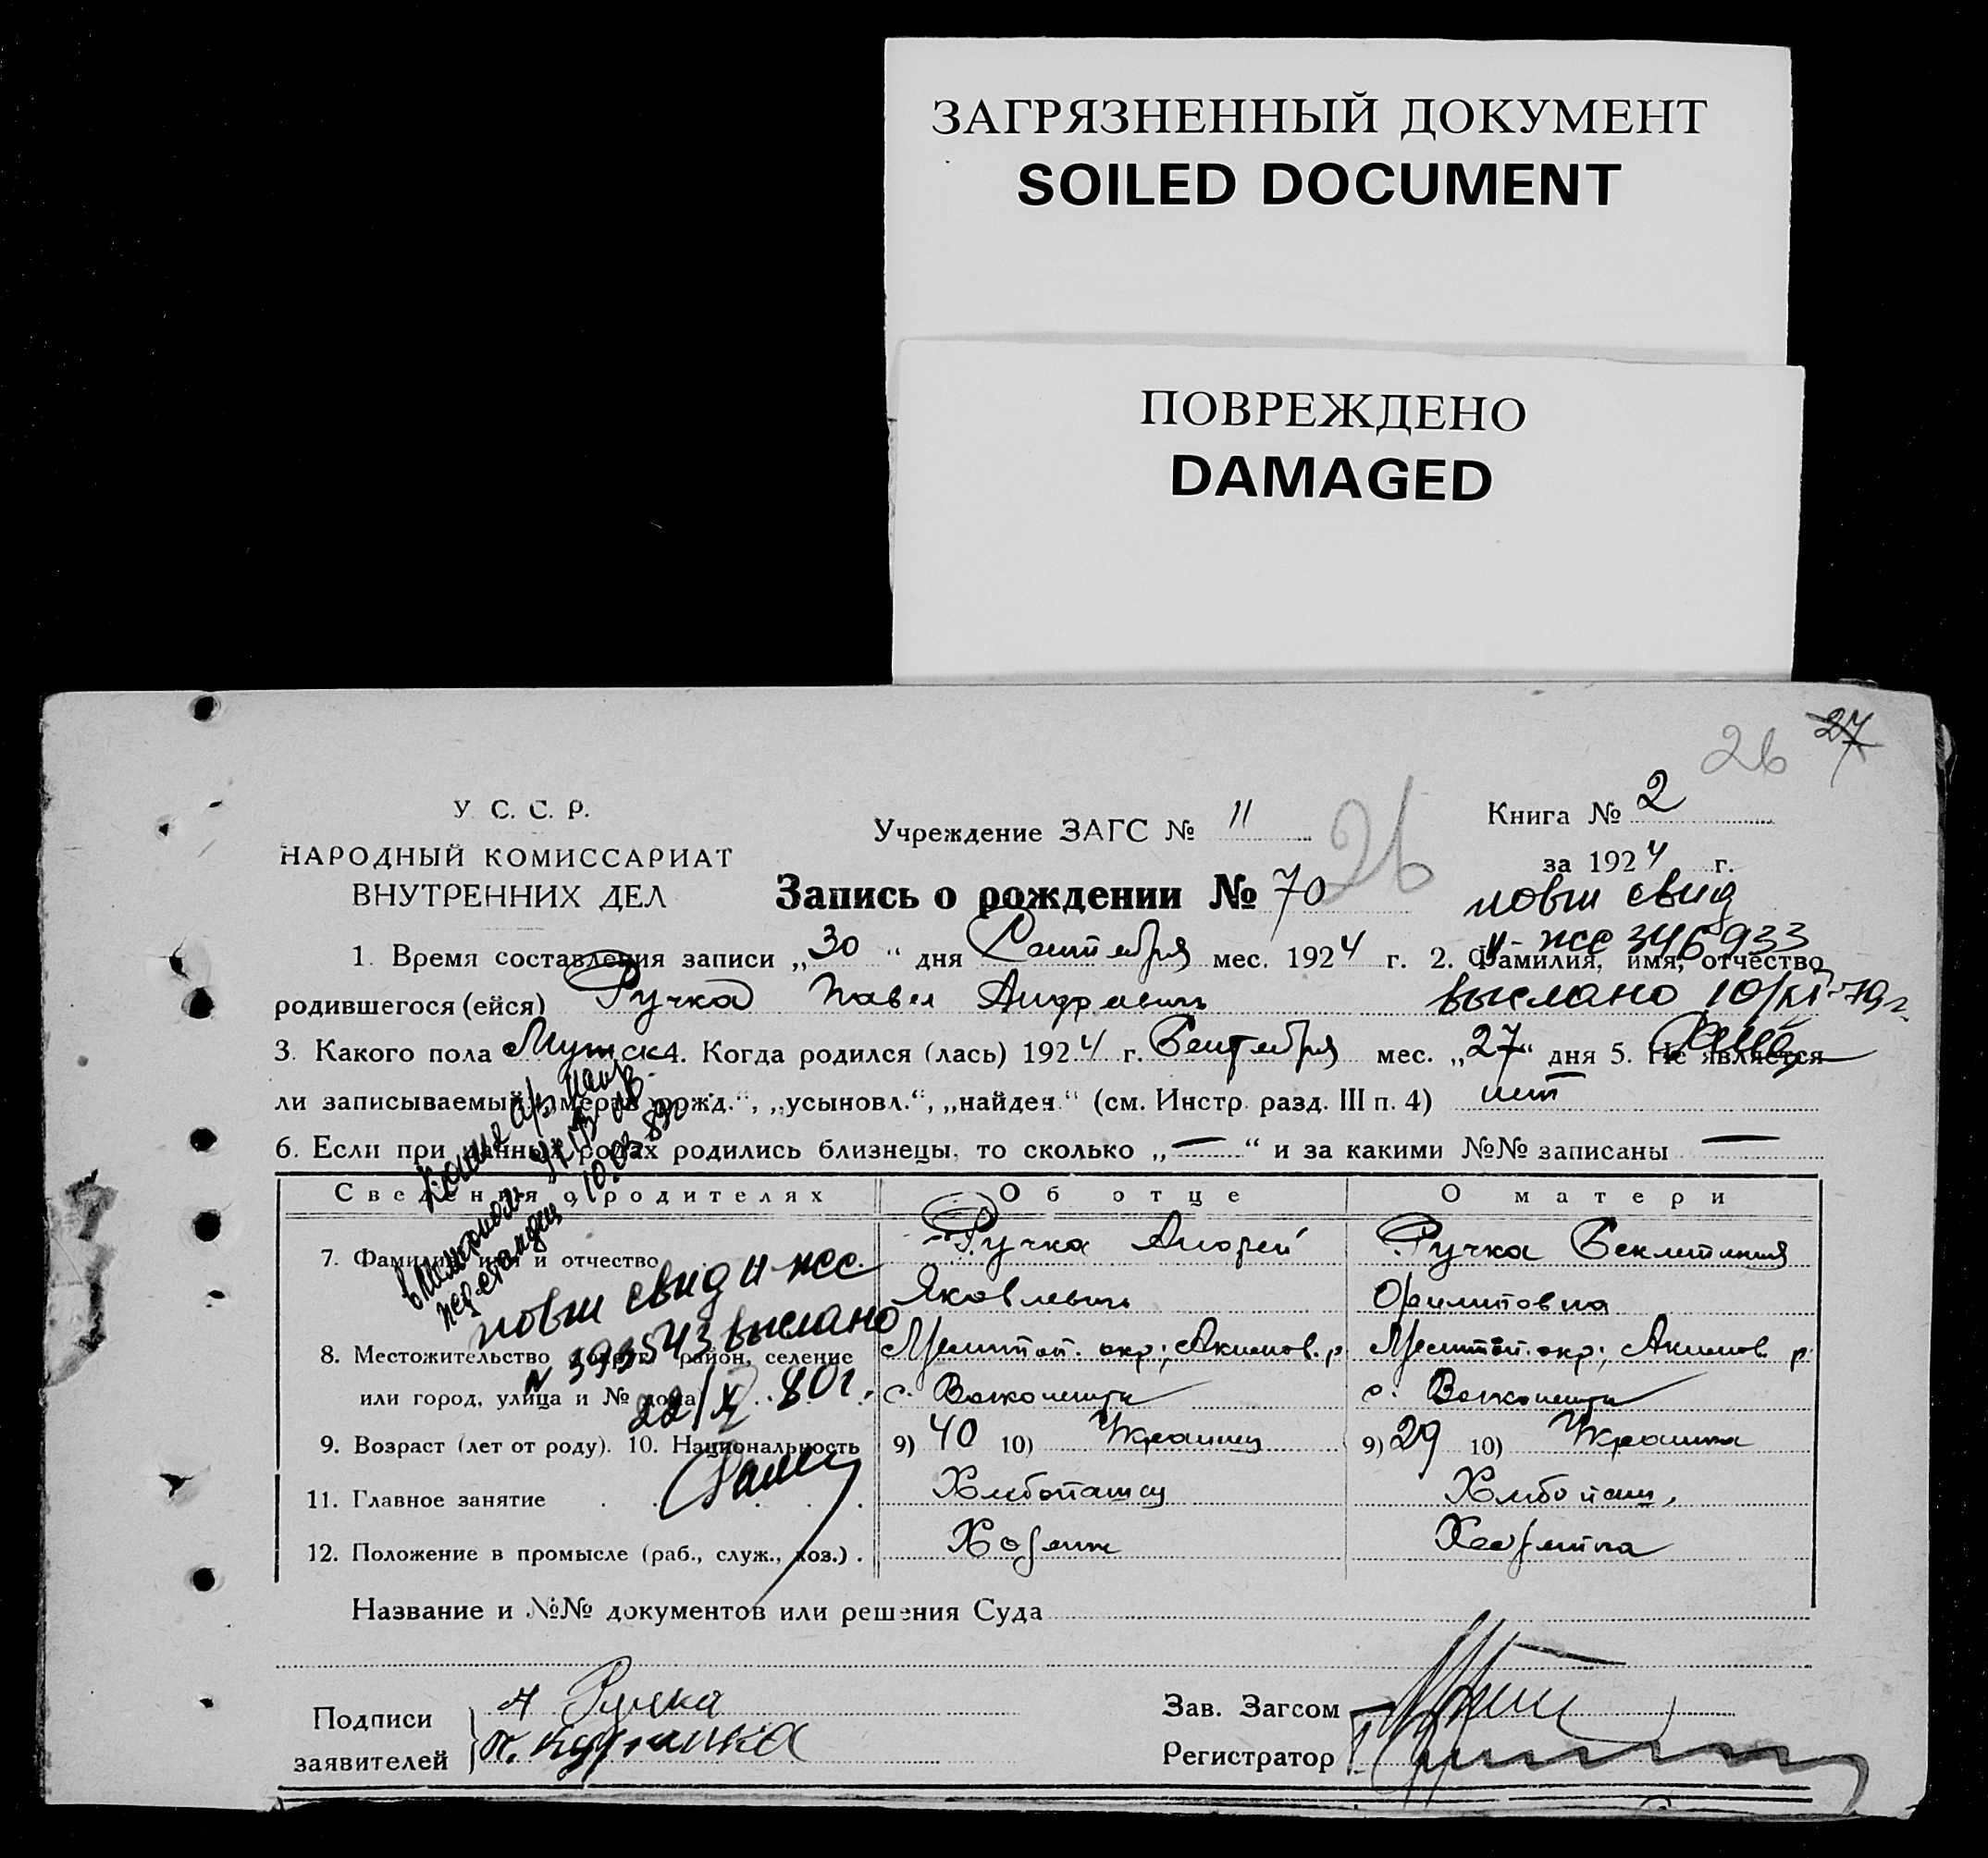 ЗАГРЯЗНЕННЫЙ ДОКУМЕНТ
SOILED DOCUMENT
ПОВРЕЖДЕНО
DAMAGED
26 27
У. С. С. Р.
НАРОДНЫЙ КОМИССАРИАТ
ВНУТРЕННИХ ДЕЛ
Учреждение ЗАГС № 11
26
Книга № 2
за 1924 г.
Запись о рождении № 70
повт свид
1. Время составления записи „30“ дня Сентября мес. 1924 г. 2. Фамилия, имя, отчество
родившегося (ейся) Ручка Павел Андреевич
выслано 10/XI-79 г.
3. Какого пола Мужск 4. Когда родился (лась) 1924 г. Сентября мес. „27“ дня 5. Не является
ли записываемый „мертв. рожд.“, „усыновл.“, „найден.“ (см. Инстр. разд. III п. 4) нет
6. Если при данных родах родились близнецы, то сколько „—“ и за какими №№ записаны —
Сведения о родителях Об отце О матери
7. Фамилия, имя и отчество Ручка Андрей Ручка
Яковлевич
повт свид II-ЖС
№ 393543 выслано
22/X 80 г.
8. Местожительство округ, район, селение Мелитоп. окр., Акимов. р. Мелитоп. окр., Акимов р.
или город, улица и № дома с. с.
9. Возраст (лет от роду). 10. Национальность 9) 40 10) Украинец 9) 29 10) Украинка
11. Главное занятие Хлебопашец Хлебопаш.
12. Положение в промысле (раб., служ., хоз.) Хозяин Хозяйка
Название и №№ документов или решения Суда
Подписи заявителей А Ручка
Зав. Загсом
Регистратор